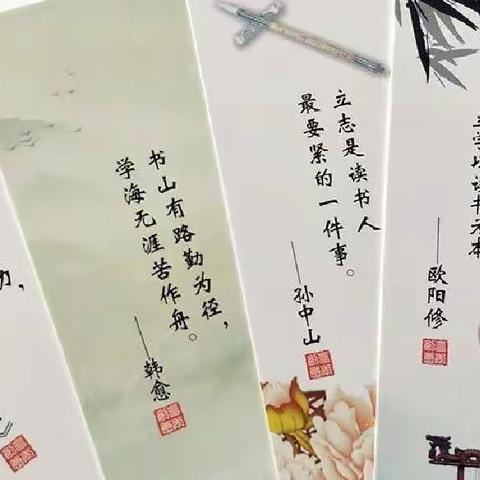 书山有路勤为径，
学海无涯苦作舟。
——韩愈
立志是读书人
最要紧的一件事。
——孙中山
立学以读书为本
——欧阳修